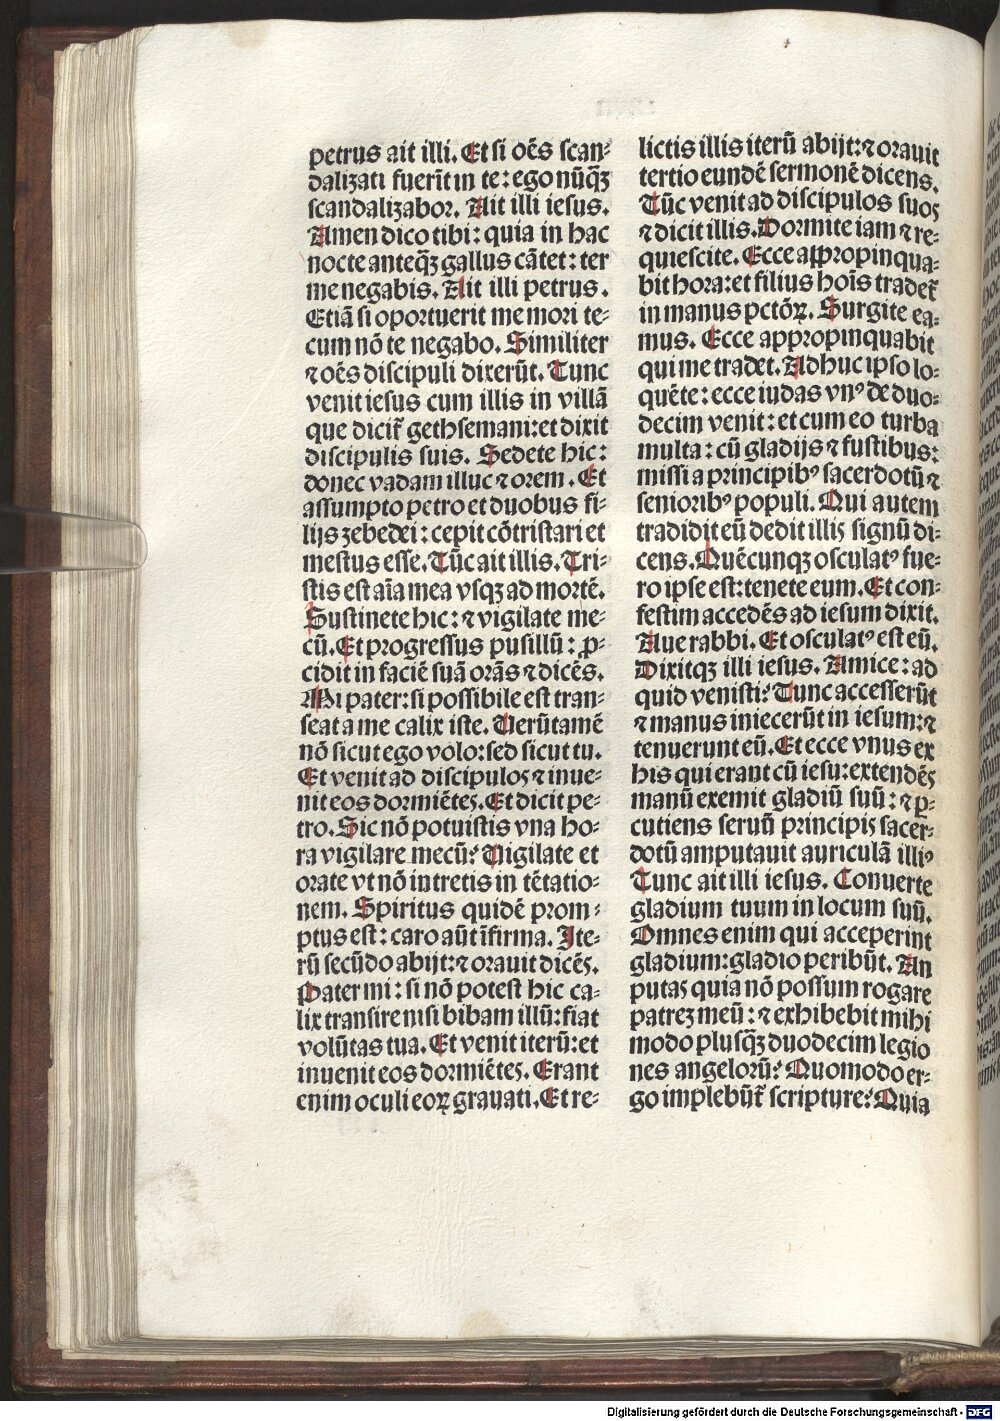 petrus ait illi. Et si oēs scan⸗
dalizati fuerīt in te: ego nūqꝫ
scandalizabor. Ait illi iesus.
Amen dico tibi: quia in hac
nocte anteqꝫ gallus cātet: ter
me negabis. Ait illi petrus.
Etiā si oportuerit me mori te⸗
cum nō te negabo. Similiter
⁊ oēs discipuli dixerūt. Tunc
venit iesus cum illis in villā
que dicit̄ gethsemani: et dixit
discipulis suis. Sedete hic:
donec vadam illuc ⁊ orem. Et
assumpto petro et duobus fi⸗
lijs zebedei: cepit cōtristari et
mestus esse. Tūc ait illis. Tri⸗
stis est aīa mea vsqꝫ ad mortē.
Sustinete hic: ⁊ vigilate me⸗
cū. Et progressus pusillū: ꝓ⸗
cidit in faciē suā orās ⁊ dicēs.
Mi pater: si possibile est tran⸗
seat a me calix iste. Verūtamē
nō sicut ego volo: sed sicut tu.
Et venit ad discipulos ⁊ inue⸗
nit eos dormiētes. Et dicit pe⸗
tro. Sic nō potuistis vna ho⸗
ra vigilare mecū? Vigilate et
orate vt nō intretis in tētatio⸗
nem. Spiritus quidē prom⸗
ptus est: caro aūt īfirma. Ite⸗
rū secūdo abijt: ⁊ orauit dicēs.
Pater mi: si nō potest hic ca⸗
lix transire nisi bibam illū: fiat
volūtas tua. Et venit iterū: et
inuenit eos dormiētes. Erant
enim oculi eoꝝ grauati. Et re⸗
lictis illis iterū abijt: ⁊ orauit
tertio eundē sermonē dicens.
Tūc venit ad discipulos suos
⁊ dicit illis. Dormite iam ⁊ re⸗
quiescite. Ecce appropinqua⸗
bit hora: et filius hoīs tradet̄
in manus pctōꝝ. Surgite ea⸗
mus. Ecce appropinquabit
qui me tradet. Adhuc ipso lo⸗
quēte: ecce iudas vnꝰ de duo⸗
decim venit: et cum eo turba
multa: cū gladijs ⁊ fustibus:
missi a principibꝰ sacerdotū ⁊
senioribꝰ populi. Qui autem
tradidit eū dedit illis signū di⸗
cens. Quēcunqꝫ osculatꝰ fue⸗
ro ipse est: tenete eum. Et con⸗
festim accedēs ad iesum dixit.
Aue rabbi. Et osculatꝰ est eū.
Dixitqꝫ illi iesus. Amice: ad
quid venisti? Tunc accesserūt
⁊ manus iniecerūt in iesum: ⁊
tenuerunt eū. Et ecce vnus ex
his qui erant cū iesu: extendēs
manū exemit gladiū suū: ⁊ ꝑ⸗
cutiens seruū principis sacer⸗
dotū amputauit auriculā illiꝰ
Tunc ait illi iesus. Conuerte
gladium tuum in locum suū.
Omnes enim qui acceperint
gladium: gladio peribūt. An
putas quia nō possum rogare
patreꝫ meū: ⁊ exhibebit mihi
modo plusqꝫ duodecim legio
nes angelorū? Quomodo er⸗
go implebūt̄ scripture? Quia
Digitalisierung gefördert durch die Deutsche Forschungsgemeinschaft - DFG